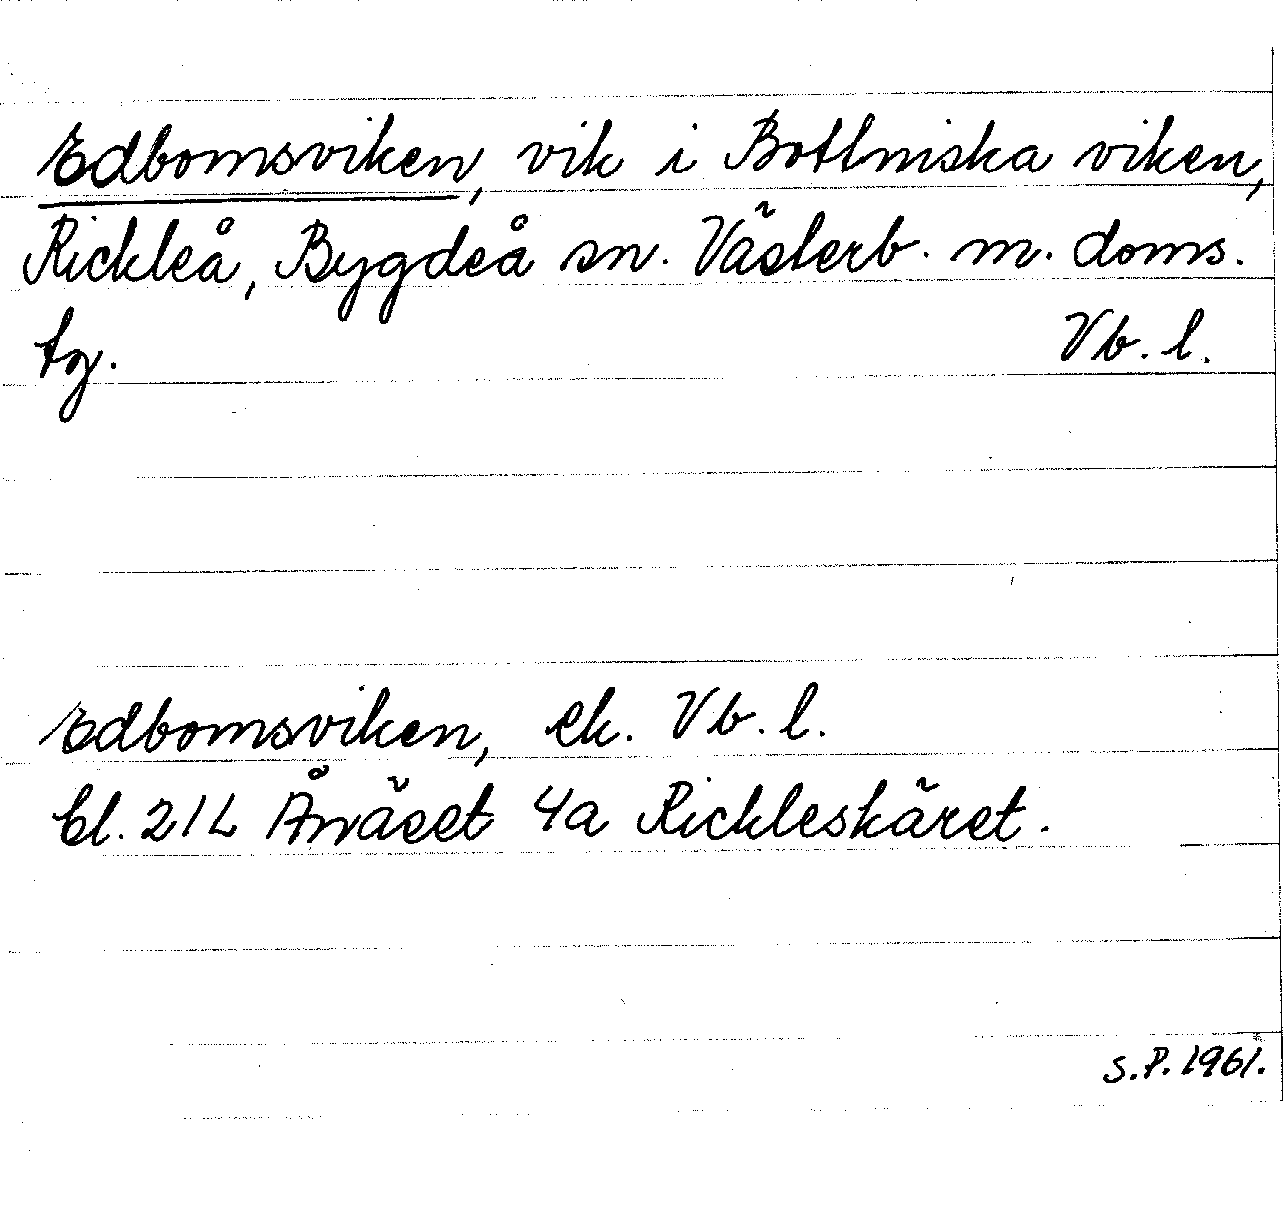 Edbomsviken, vik i Bottniska viken,
Rickleå, Bygdeå sn. Västerb. m. doms.
tg. Vb. l.
Edbomsviken, ek. Vb. l.
bl. 21L Ånäset 4a Rickleskäret.
S.P. 1961.